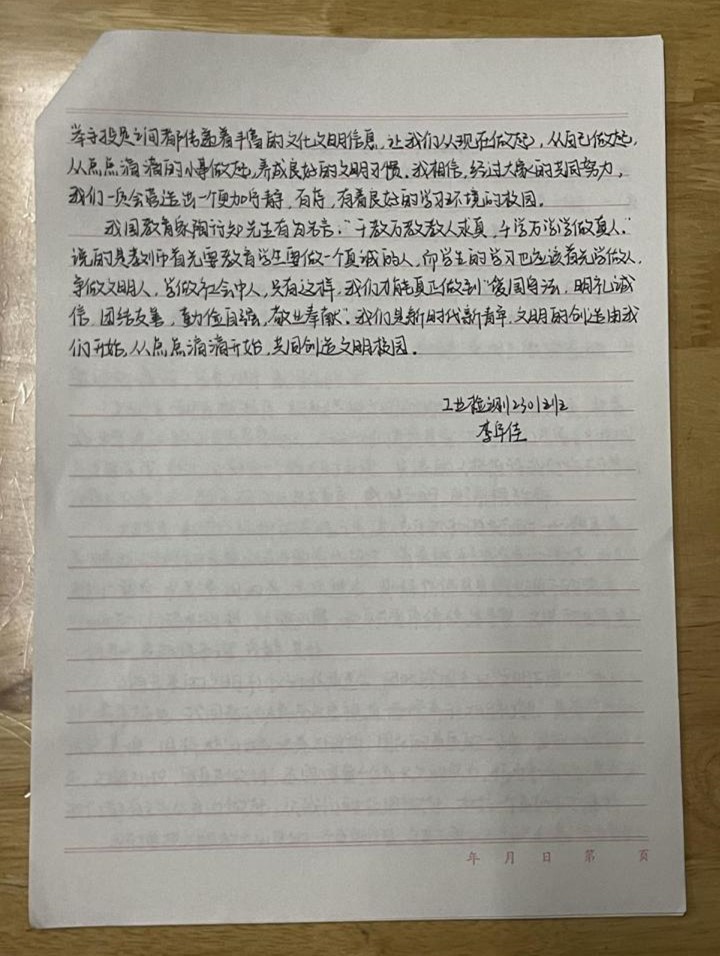 举手投足之间都传递着丰富的文化文明信息，让我们从现在做起，从自己做起，
从点点滴滴的小事做起，养成良好的文明习惯。我相信，经过大家的共同努力，
我们一定会营造出一个更加宁静，有序，有着良好的学习环境的校园。
我国教育家陶行知先生有句名言："千教万教教人求真，千学万学学做真人。"
说的是教师首先要教育学生要做一个真诚的人，而学生的学习也应该首先学做人，
争做文明人，当做社会中人，只有这样，我们才能真正做到"爱国守法，明礼诚
信，团结友善，勤俭自强，敬业奉献"。我们是新时代新青年，文明的创造由我
们开始，从点点滴滴开始，共同创造文明校园。
工业检测2301班
李阜佳
年 月 日 第 页